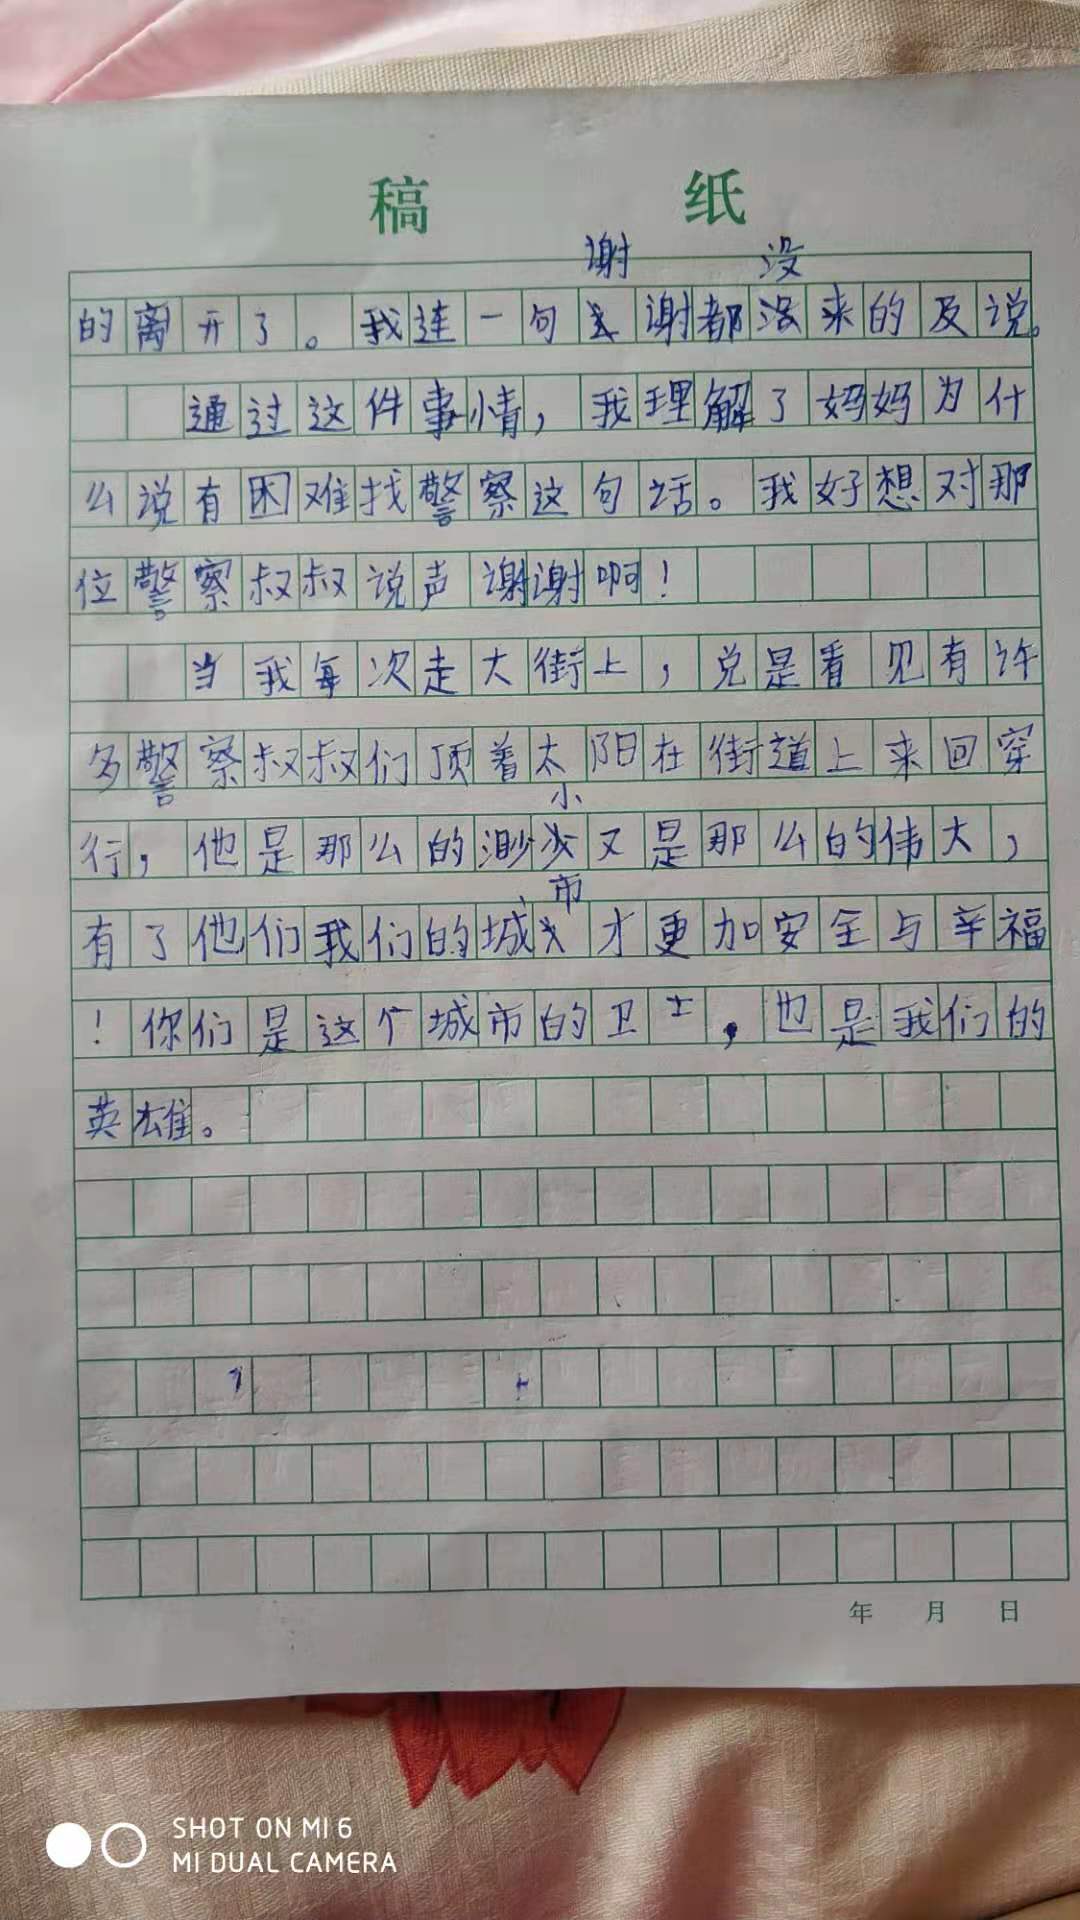 稿 纸
谢 没
的离开了。我连一句谢都来的及说。
通过这件事情，我理解了妈妈为什
么说有困难找警察这句话。我好想对那
位警察叔叔说声谢谢啊！
当我每次走大街上，兑是看见有许
多警察叔叔们顶着太阳在街道上来回穿
小
行，他是那么的渺又是那么的伟大，
市
有了他们我们的城才更加安全与辛福
！你们是这个城市的卫士，也是我们的
英雄。
年 月 日
SHOT ON MI 6
MI DUAL CAMERA